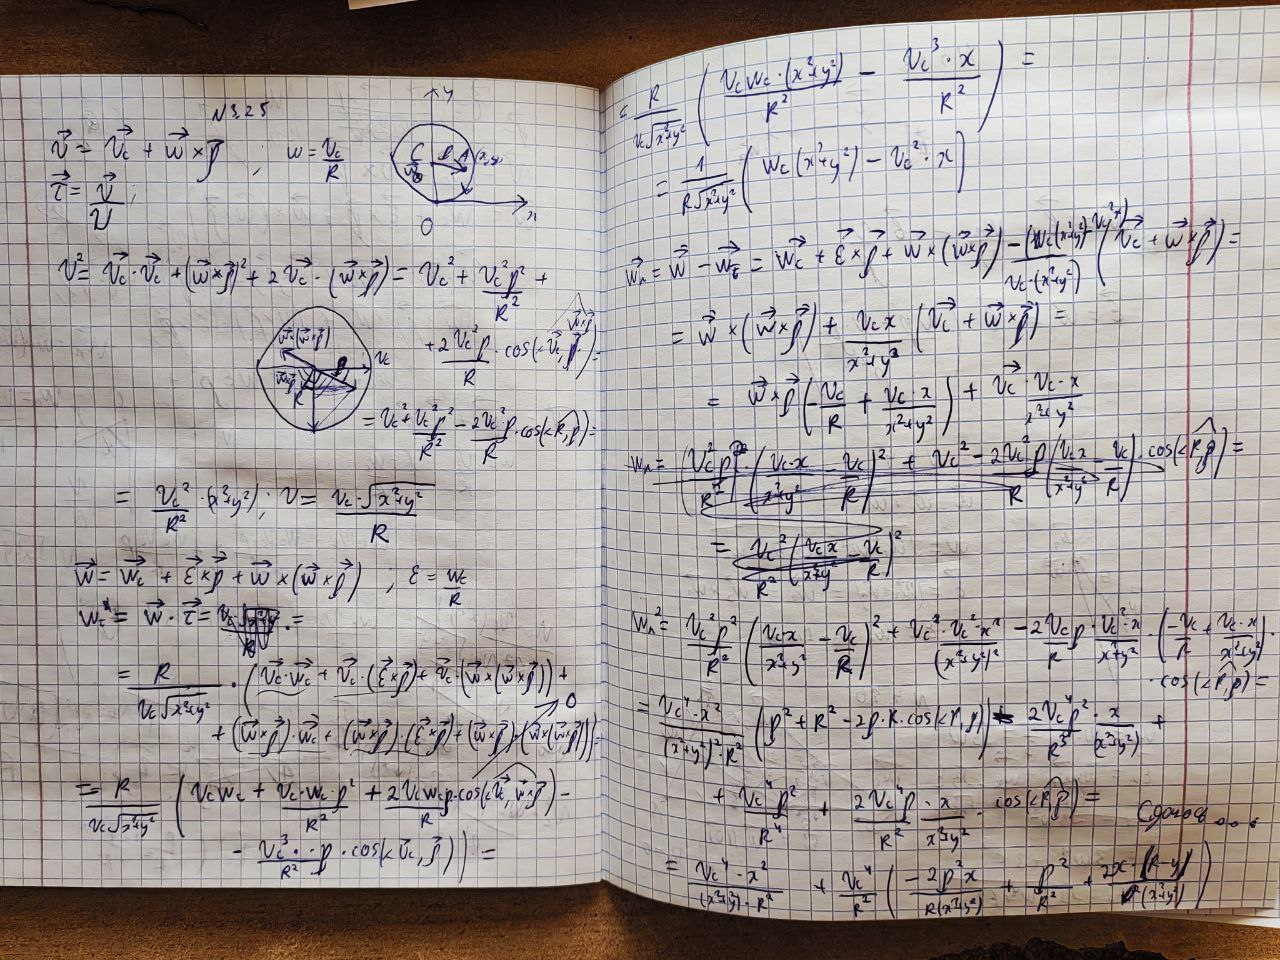 N3.25
y
v⃗ = v⃗c + w⃗ × ρ⃗ ; w = vc/R
C ρ A (x,y)
τ⃗ = v⃗/v ;
O x
v² = v⃗c · v⃗c + (w⃗×ρ⃗)² + 2v⃗c · (w⃗×ρ⃗) = vc² + vc²ρ²/R² +
+ 2vc²ρ/R · cos(∠v⃗c, w⃗×ρ⃗) =
w⃗×(w⃗×ρ⃗) vc
w⃗×ρ⃗ ρ R
= vc² + vc²ρ²/R² − 2vc²ρ/R · cos(∠R, ρ) =
= vc²/R² · (x²+y²) ; v = vc·√(x²+y²)/R
w⃗ = w⃗c + ε⃗×ρ⃗ + w⃗×(w⃗×ρ⃗) ; ε = wc/R
wτ = w⃗ · τ⃗ =
= R/(vc√(x²+y²)) · (v⃗c·w⃗c + v⃗c·(ε⃗×ρ⃗) + v⃗c·(w⃗×(w⃗×ρ⃗)) +
+ (w⃗×ρ⃗)·w⃗c + (w⃗×ρ⃗)·(ε⃗×ρ⃗) + (w⃗×ρ⃗)·(w⃗×(w⃗×ρ⃗))) = 0
= R/(vc√(x²+y²)) (vcwc + vc·wc·ρ²/R² + 2vcwcρ/R · cos(∠v⃗c, w⃗×ρ⃗) −
− vc³/R² · ρ · cos(∠v⃗c, ρ⃗)) =
= R/(vc√(x²+y²)) (vcwc·(x²+y²)/R² − vc³·x/R²) =
= 1/(R√(x²+y²)) (wc(x²+y²) − vc²·x)
w⃗n = w⃗ − w⃗τ = w⃗c + ε⃗×ρ⃗ + w⃗×(w⃗×ρ⃗) − (wc(x²+y²) − vc²x)/(vc·(x²+y²)) (v⃗c + w⃗×ρ⃗) =
= w⃗×(w⃗×ρ⃗) + vcx/(x²+y²) (v⃗c + w⃗×ρ⃗) =
= w⃗×ρ⃗ (−vc/R + vc·x/(x²+y²)) + v⃗c · vc·x/(x²+y²)
wn² = vc²ρ²/R² (vc·x/(x²+y²) − vc/R)² + vc²·vc²·x²/(x²+y²)² − 2vcρ/R · vc²·x/(x²+y²) · (−vc/R + vc·x/(x²+y²)) ·
· cos(∠R, ρ) =
= vc⁴·x²/((x²+y²)²·R²) (ρ² + R² − 2ρ·R·cos(∠R, ρ)) − 2vc⁴ρ²/R³ · x/(x²+y²) +
+ vc⁴ρ²/R⁴ + 2vc⁴ρ/R² · x/(x²+y²) · cos(∠R, ρ) =
= vc⁴·x²/((x²+y²)·R²) + vc⁴/R² (−2ρ²x/(R(x²+y²)) + ρ²/R² + 2x·(R−y)/(R(x²+y²)))